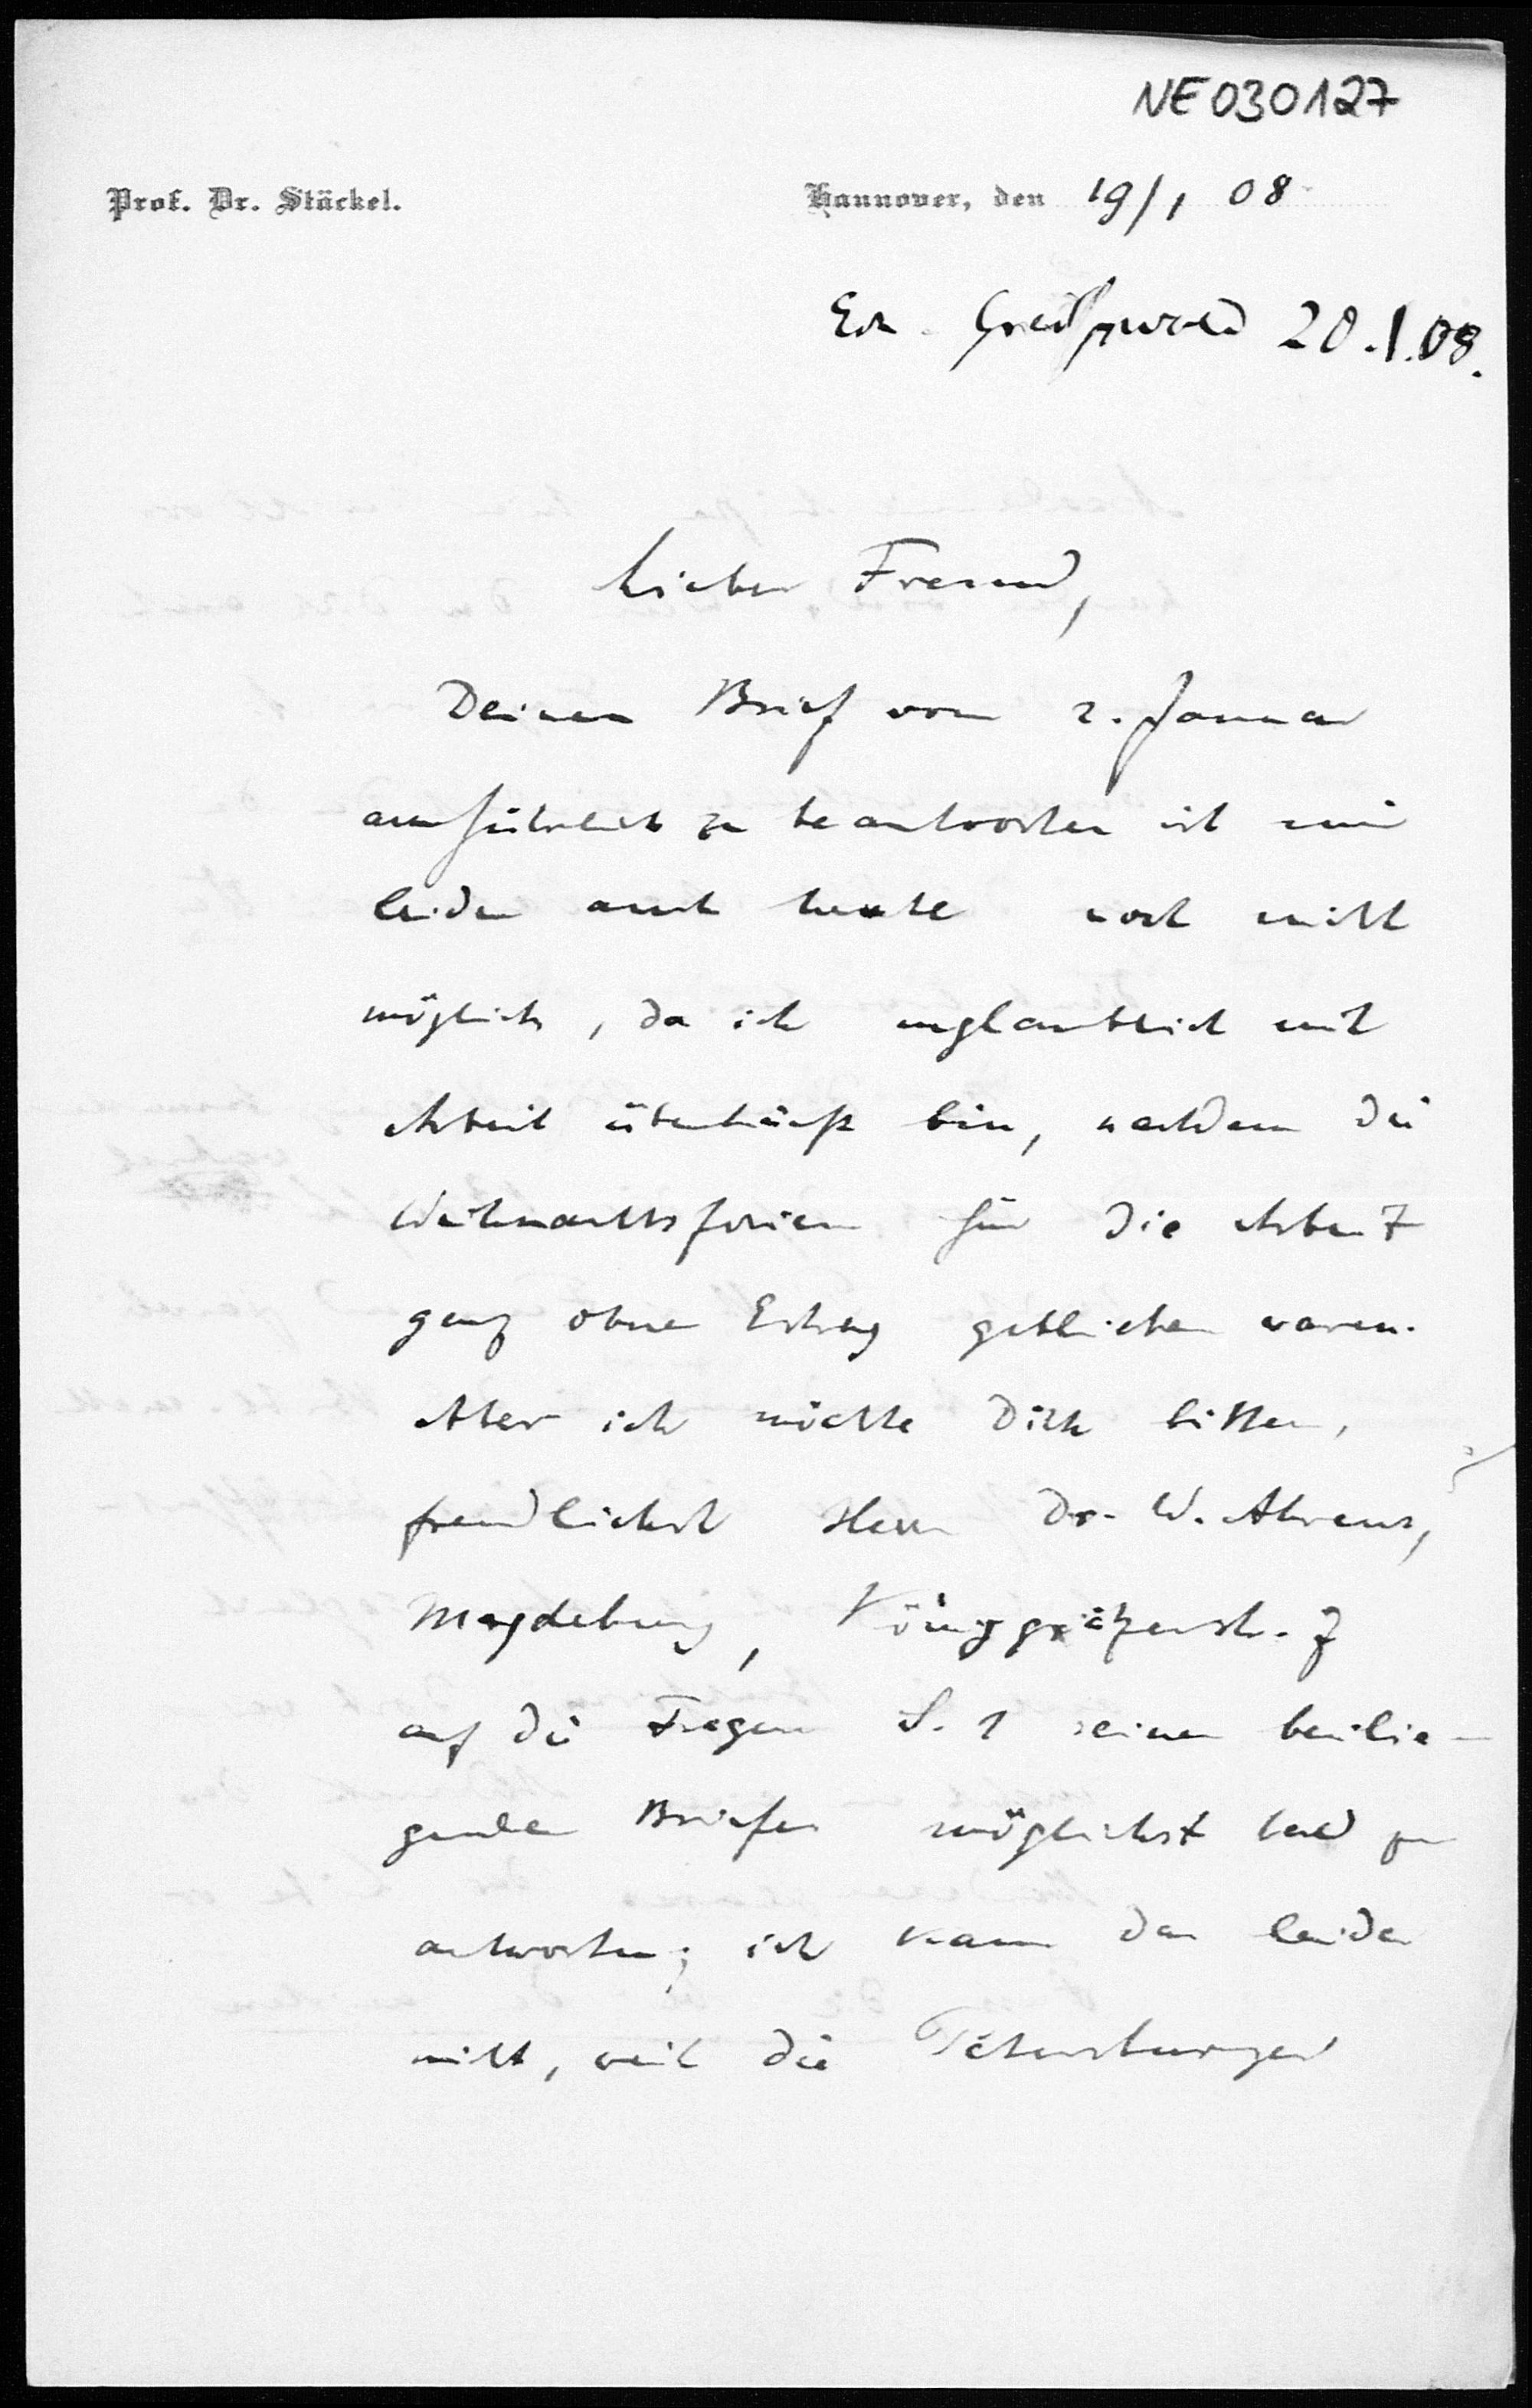 NE030127
Prof. Dr. Stäckel.
Hannover, den 19/1 08
Erh. Greifswald 20.1.08.
Lieber Freund,
Deinen Brief vom 2. Januar
ausführlich zu beantworten ist mir
leider auch heute noch nicht
möglich, da ich unglaublich mit
Arbeit überhäuft bin, nachdem die
Weihnachtsferien für die Arbeit
ganz ohne Ertrag geblieben waren.
Aber ich möchte Dich bitten,
freundlichst Herrn Dr. W. Ahrens,
Magdeburg, Königgrätzerstr. 7
auf die Fragen S. 1 seines beilie-
genden Briefes möglichst bald zu
antworten; ich kann das leider
nicht, weil die Petersburger